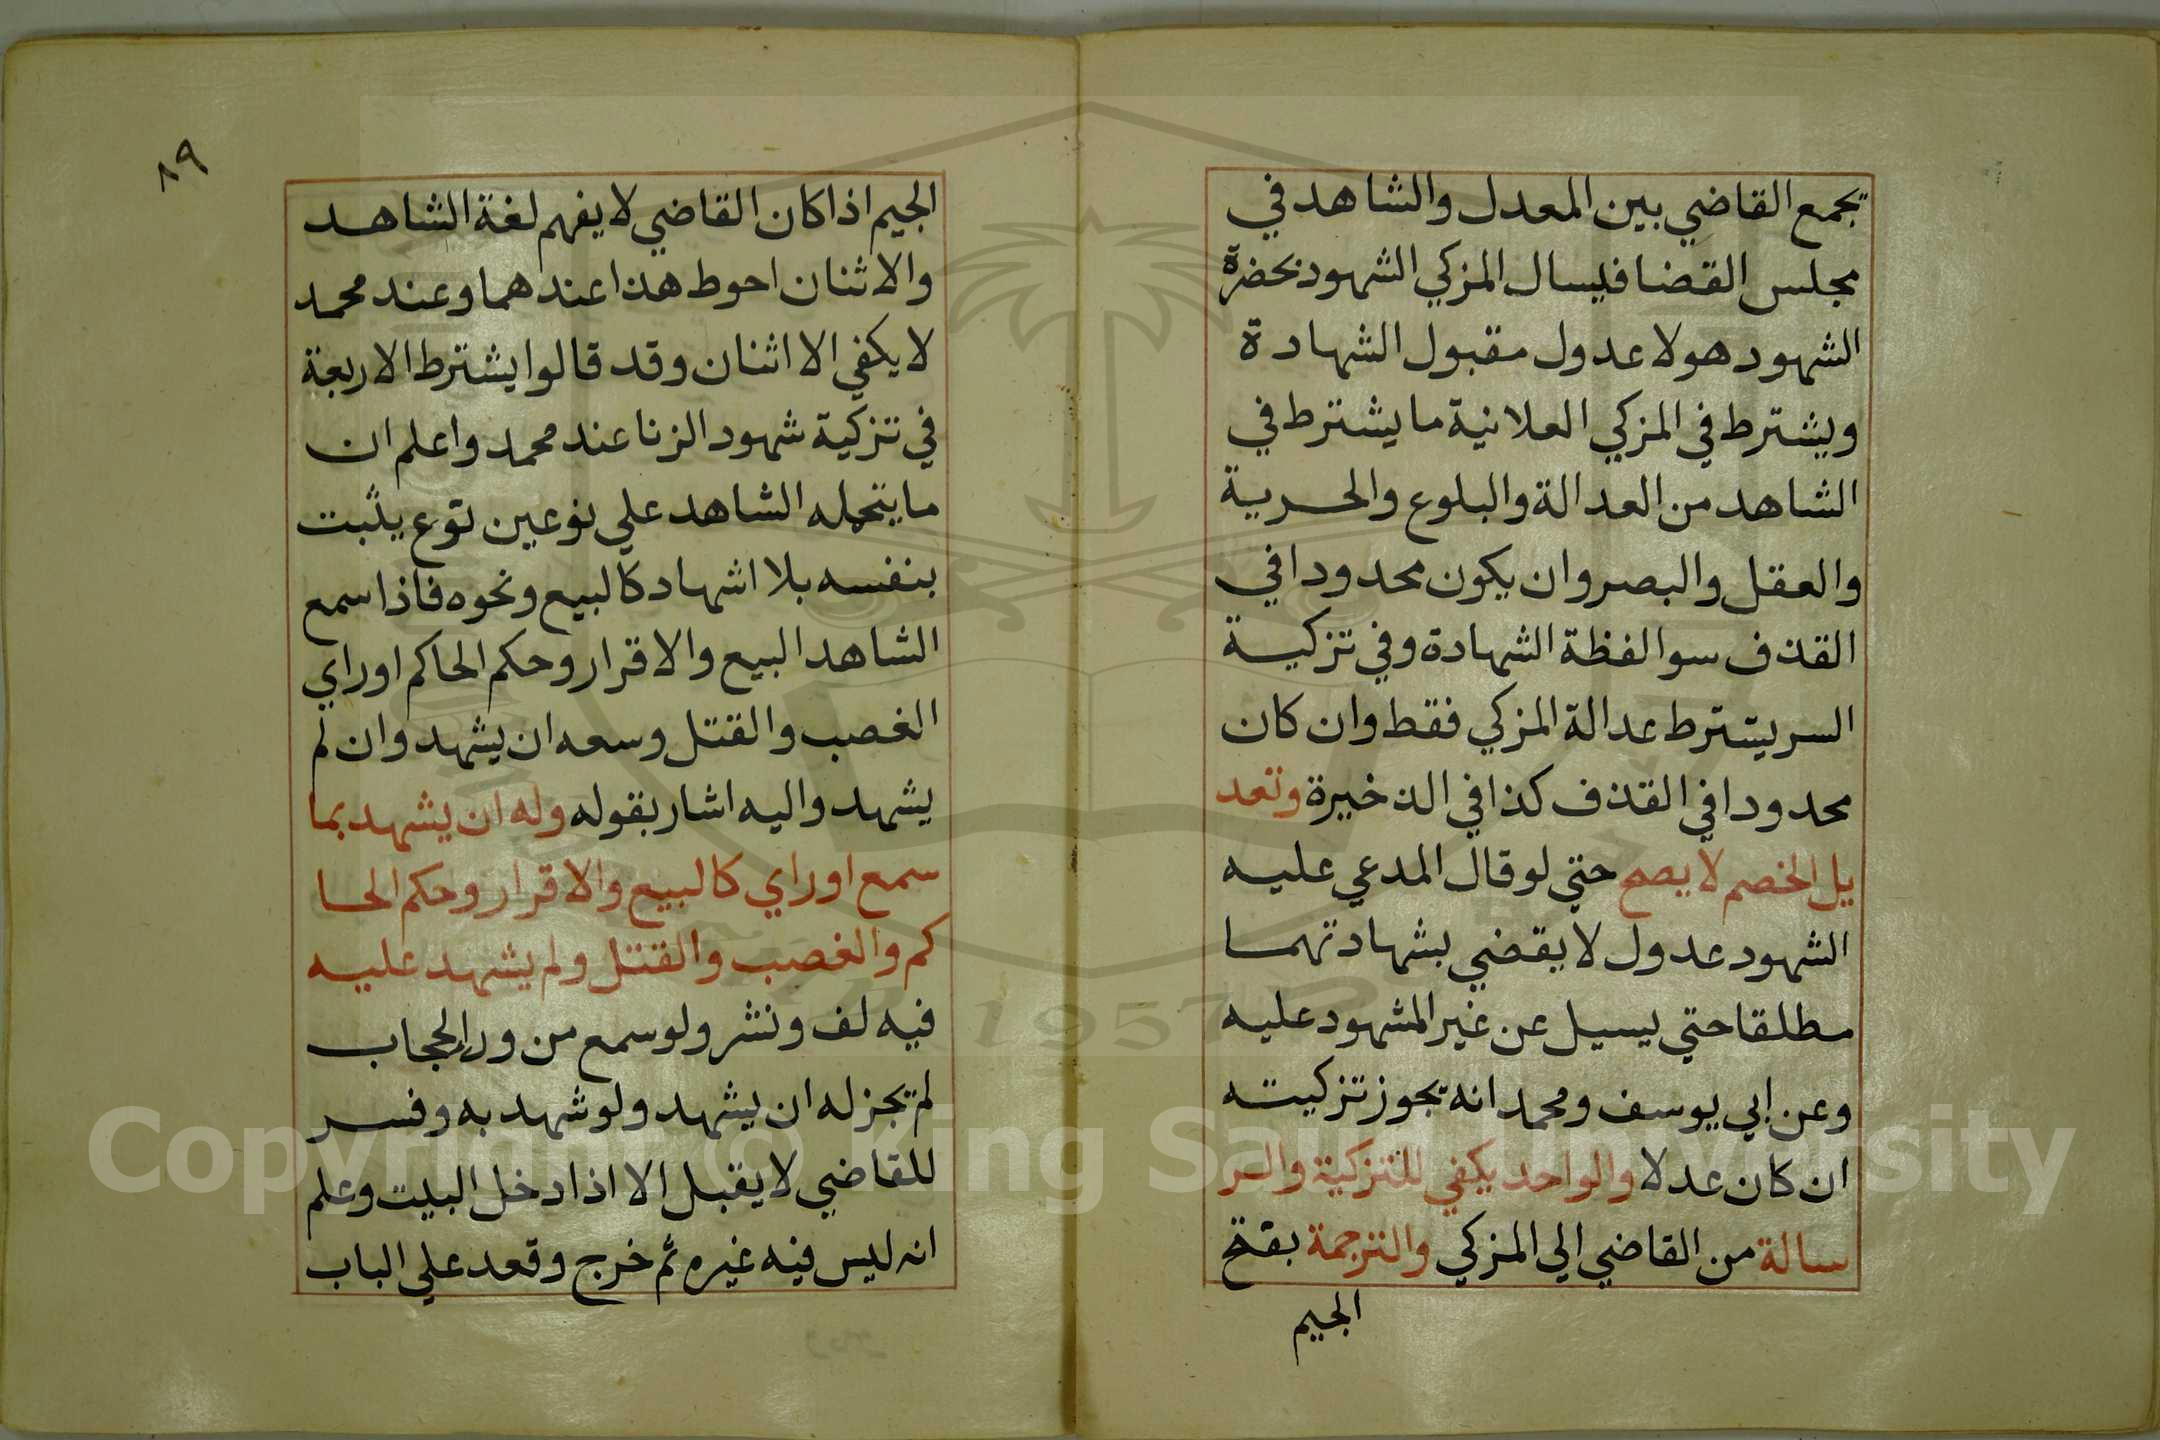 يجمع القاضي بين المعدل والشاهد في
مجلس القضا فليسال المزكي الشهود بحضرة
الشهود هولا عدول مقبول الشهادة
ويشترط في المزكي العلانية ما يشترط في
الشاهد من العدالة والبلوع والحرية
والعقل والبصر وان يكون محدودا في
القذف سوا لفظة الشهادة وفي تزكية
السر يشترط عدالة المزكي فقط وان كان
محدودا في القذف كذا في الذخيرة وتعد
يل الخصم لا يصح حتي لو قال المدعي عليه
الشهود عدول لا يقضي بشهادتهما
مطلقا حتي يسيل عن غير المشهود عليه
وعن ابي يوسف ومحمد انه يجوز تزكيته
ان كان عدلا والواحد يكفي للتزكية والر
سالة من القاضي الي المزكي والترجمة بفتح
الجيم
٨٩
الجيم اذا كان القاضي لا يفهم لغة الشاهد
والاثنان احوط هذا عندهما وعند محمد
لا يكفي الا اثنان وقد قالوا يشترط الاربعة
في تزكية شهود الزنا عند محمد واعلم ان
ما يتحمله الشاهد علي نوعين نوع يثبت
بنفسه بلا اشهاد كالبيع ونحوه فاذا سمع
الشاهد البيع والاقرار وحكم الحاكم او راي
الغصب والقتل وسعه ان يشهد وان لم
يشهد واليه اشار بقوله وله ان يشهد بما
سمع او راي كالبيع والاقرار وحكم الحا
كم والغصب والقتل ولم يشهد عليه
فيه لف ونشر ولو سمع من ورا الحجاب
لم يجز له ان يشهد ولو شهد به وفسر
للقاضي لا يقبل الا اذا دخل البيت وعلم
انه ليس فيه غيره ثم خرج وقعد علي الباب
1957
Copyright © King Saud University